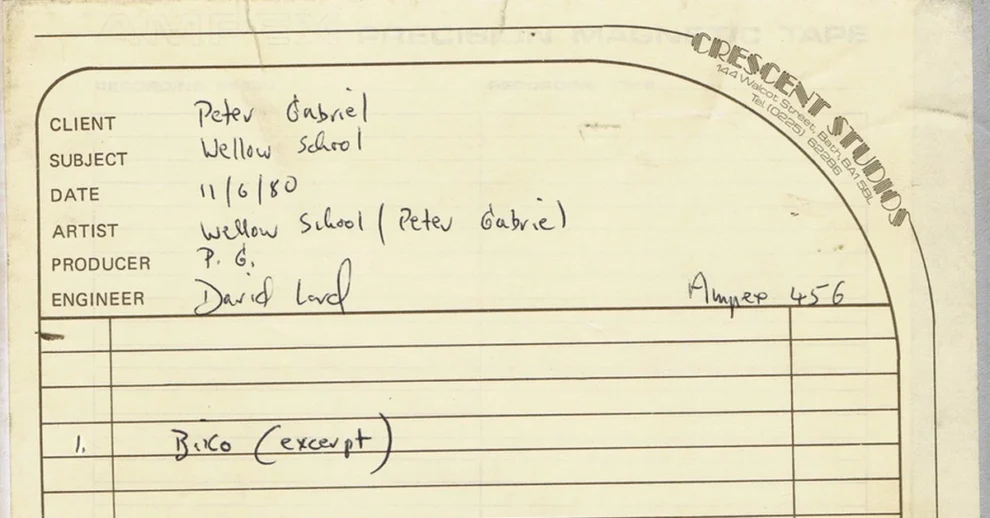 CRESCENT STUDIOS
144 Walcot Street, Bath, BA1 5BL
Tel. (0225) 62286
CLIENT Peter Gabriel
SUBJECT Wellow School
DATE 11/6/80
ARTIST Wellow School (Peter Gabriel)
PRODUCER P. G.
ENGINEER David Lord Ampex 456
1. Biko (excerpt)